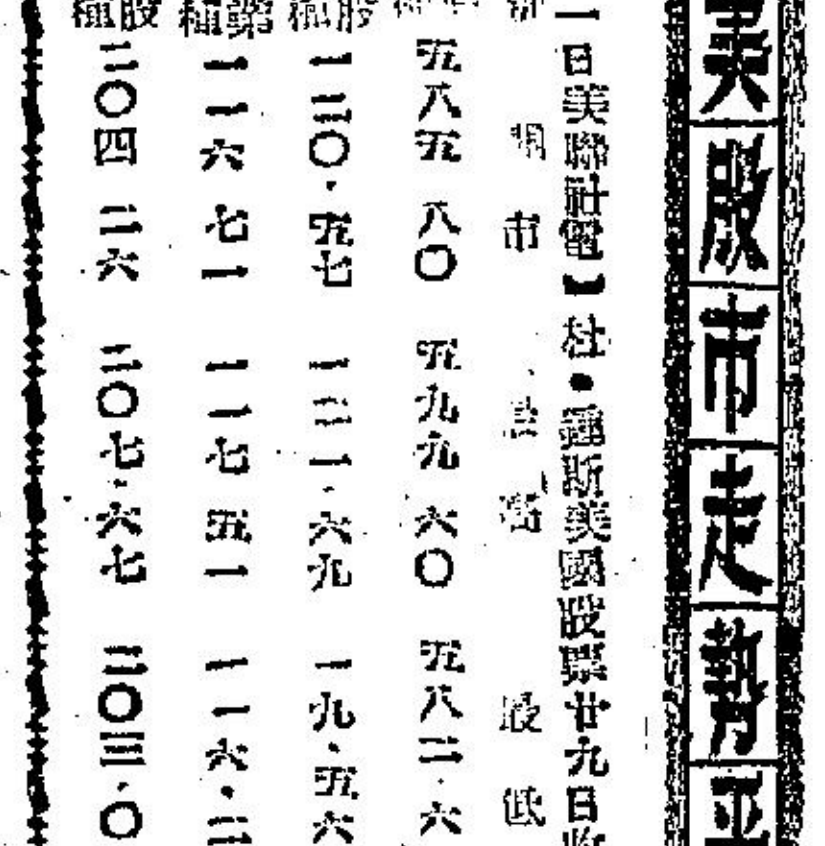 美股市走勢平
一日美聯社電】杜•鍾斯美國股票廿九日收
開市 最高 最低
五八五 八〇 五九九 六〇 五八二·六
股種 一二〇·五七 一二一·六九 一九·五六
種 一一六 七一 一一七 五一 一一六·二
股種 二〇四 二六 二〇七·六七 二〇三·〇